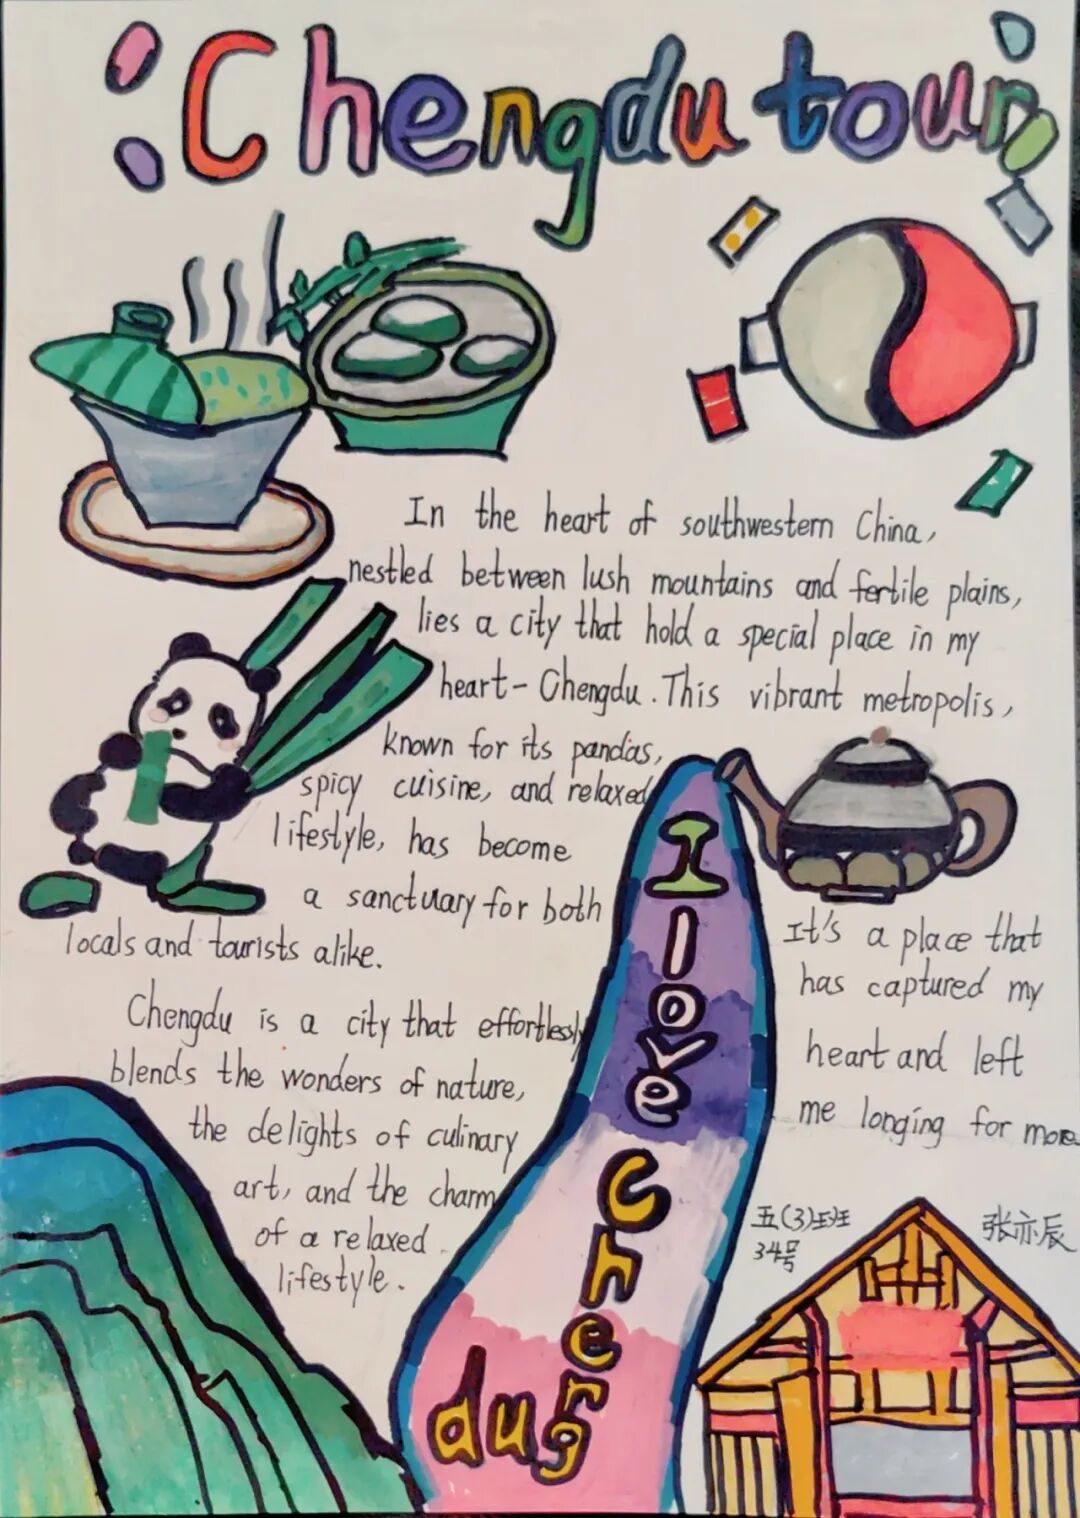 Chengdu tour
In the heart of southwestern China,
nestled between lush mountains and fertile plains,
lies a city that hold a special place in my
heart - Chengdu. This vibrant metropolis,
known for its pandas,
spicy cuisine, and relaxed
lifestyle, has become
a sanctuary for both
locals and tourists alike.
Chengdu is a city that effortlessly
blends the wonders of nature,
the delights of culinary
art, and the charm
of a relaxed
lifestyle.
I love Chengdu
It's a place that
has captured my
heart and left
me longing for more
五(3)班
34号
张亦辰